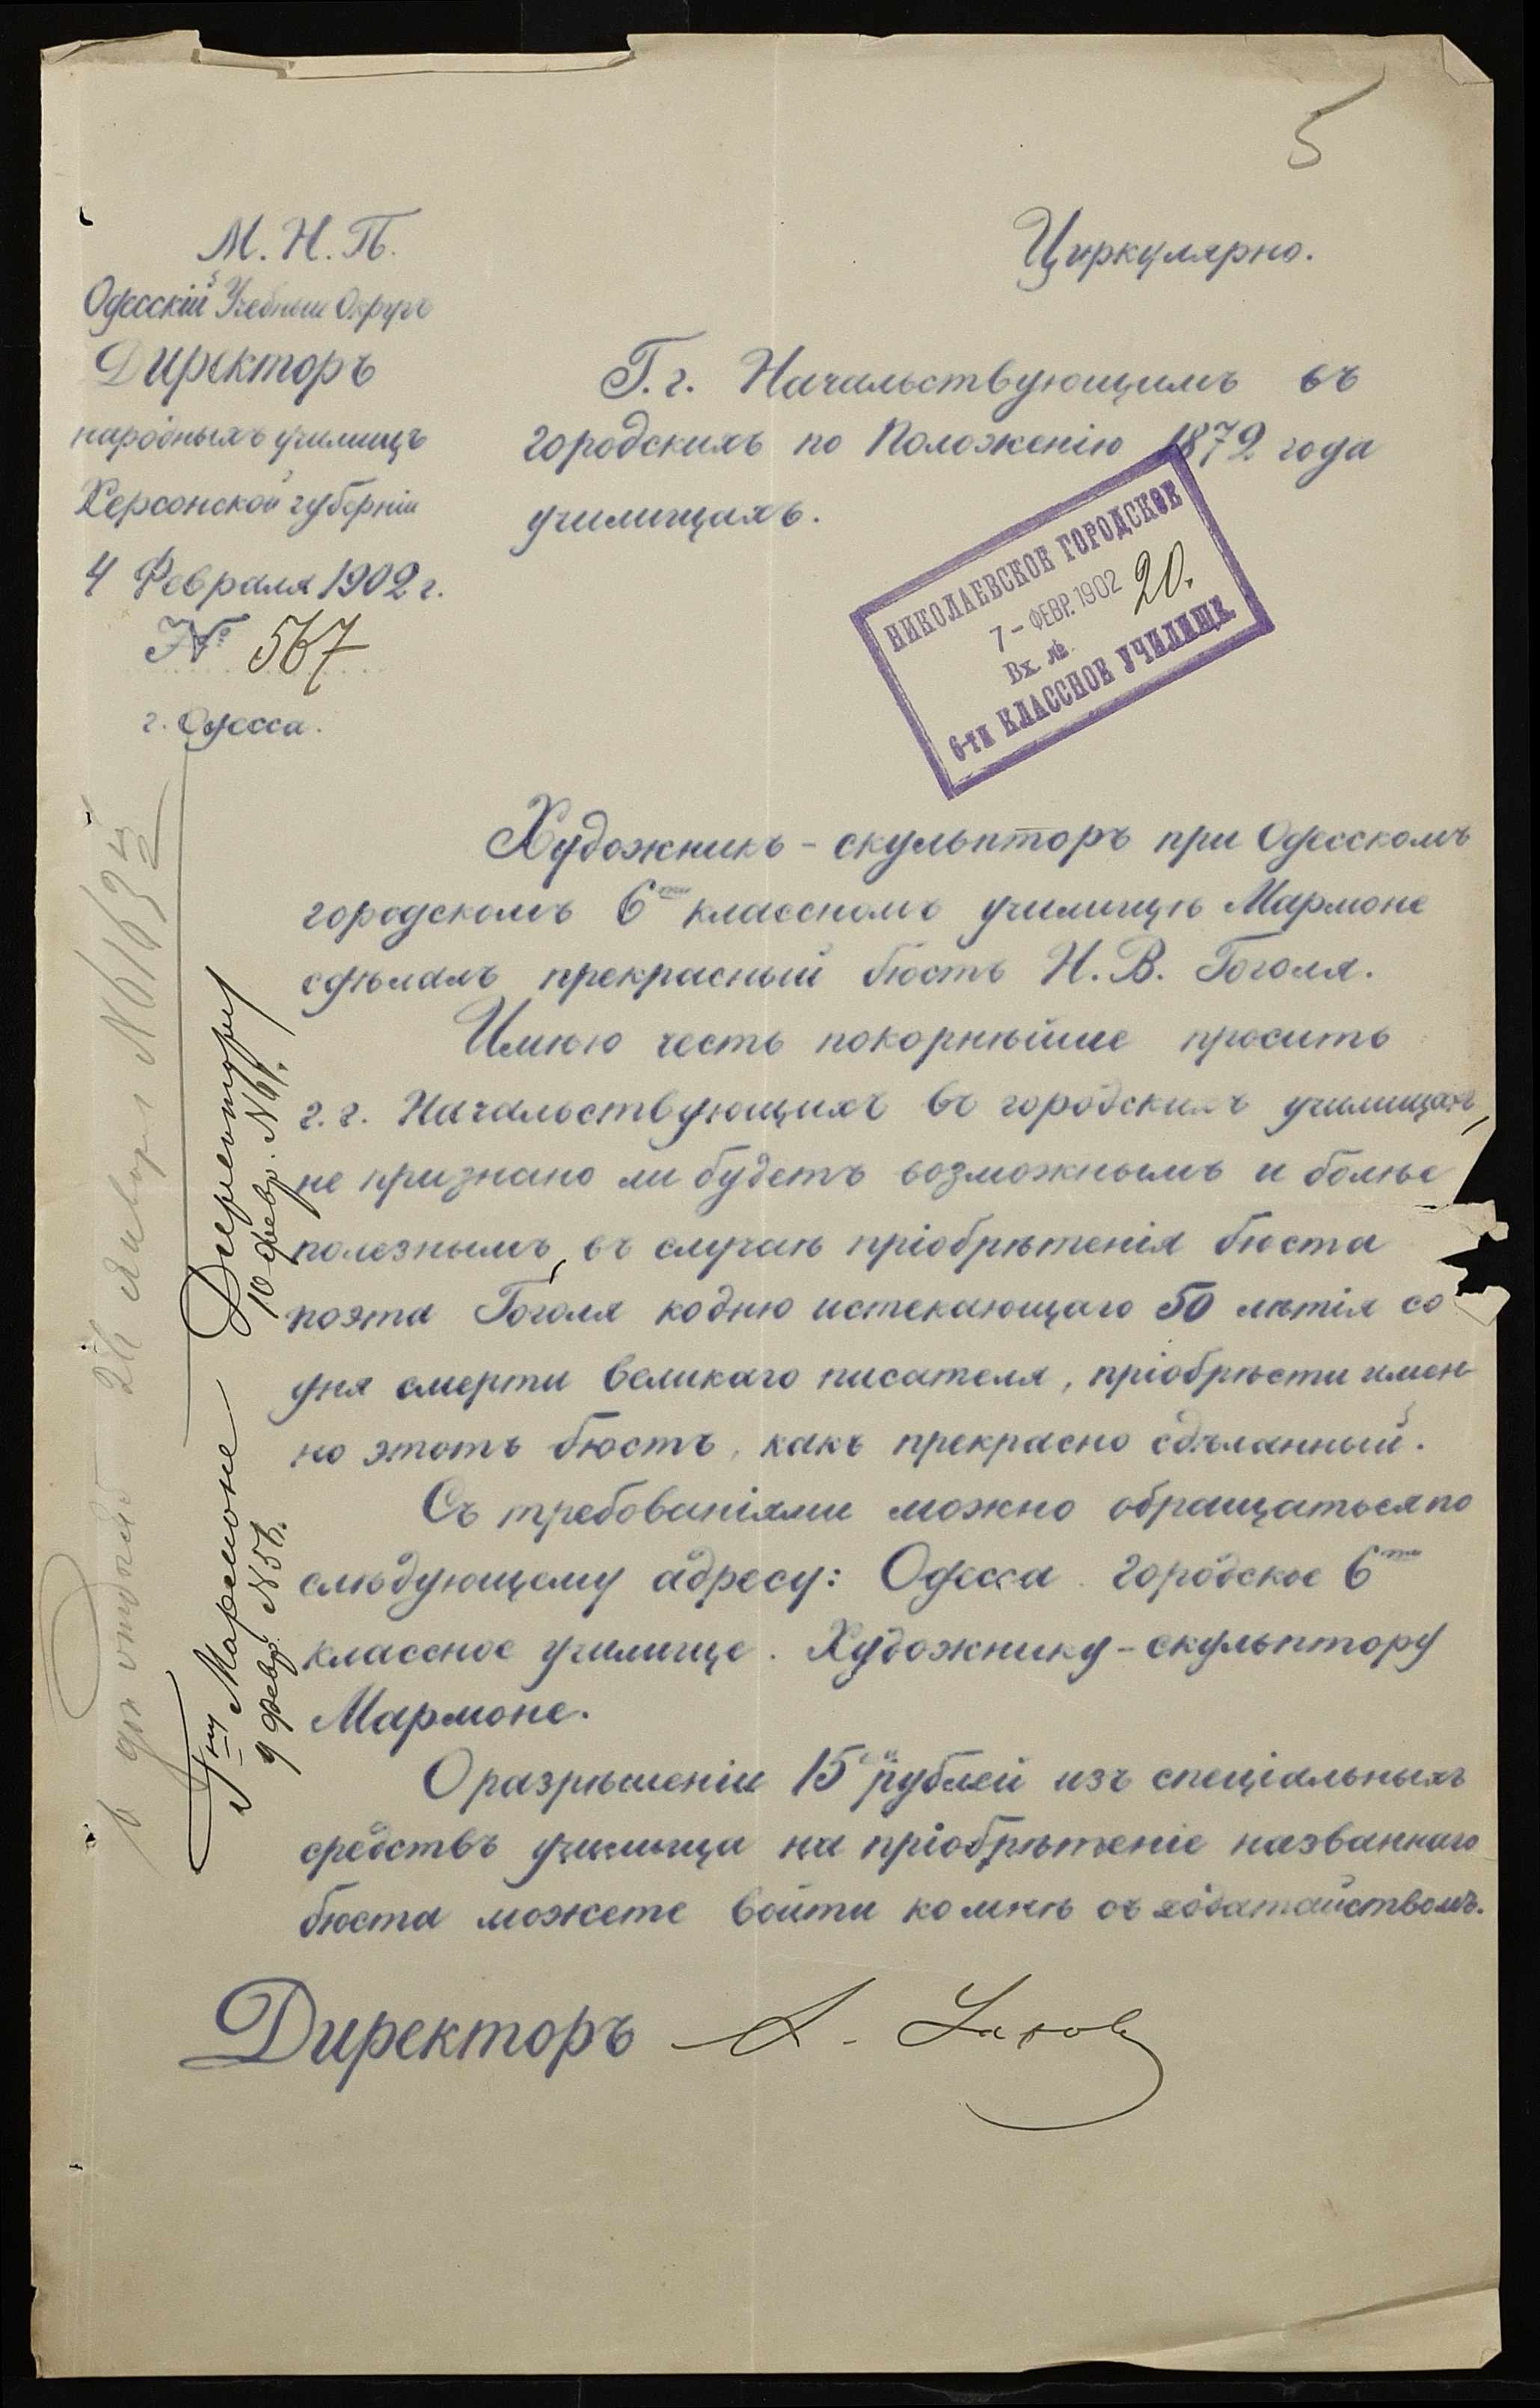 5
М. Н. П.
Одесскій Учебный Округъ
Директоръ
народныхъ училищъ
Херсонской губерніи
4 Февраля 1902 г.
№ 567
г. Одесса.
Циркулярно.
Г. г. Начальствующимъ въ
городскихъ по Положенію 1872 года
училищахъ.
НИКОЛАЕВСКОЕ ГОРОДСКОЕ
7 - ФЕВР. 1902
Вх. №. 20.
6-ти КЛАССНОЕ УЧИЛИЩЕ.
Художникъ - скульпторъ при Одесскомъ
городскомъ 6ти классномъ училищѣ Мармоне
сдѣлалъ прекрасный бюстъ Н. В. Гоголя.
Имѣю честь покорнѣйше просить
г. г. Начальствующихъ въ городскихъ училищахъ,
не признано ли будетъ возможнымъ и болѣе
полезнымъ, въ случаѣ пріобрѣтенія бюста
поэта Гоголя ко дню истекающаго 50 лѣтія со
дня смерти великаго писателя, пріобрѣсти имен-
но этотъ бюстъ, какъ прекрасно сдѣланный.
Съ требованіями можно обращаться по
слѣдующему адресу: Одесса. городское 6ти
классное училище. Художнику - скульптору
Мармоне.
О разрѣшеніи 15 рублей изъ спеціальныхъ
средствъ училища на пріобрѣтеніе названнаго
бюста можете войти ко мнѣ съ ходатайствомъ.
Директоръ А.
Гну Мармоне
9 февр. №56.
Директору
10 февр. №61.